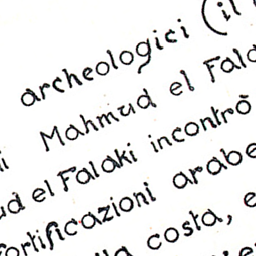 archeologici (il
Mahmud el
el Falaki incontrò
fortificazioni arabe
costa, e